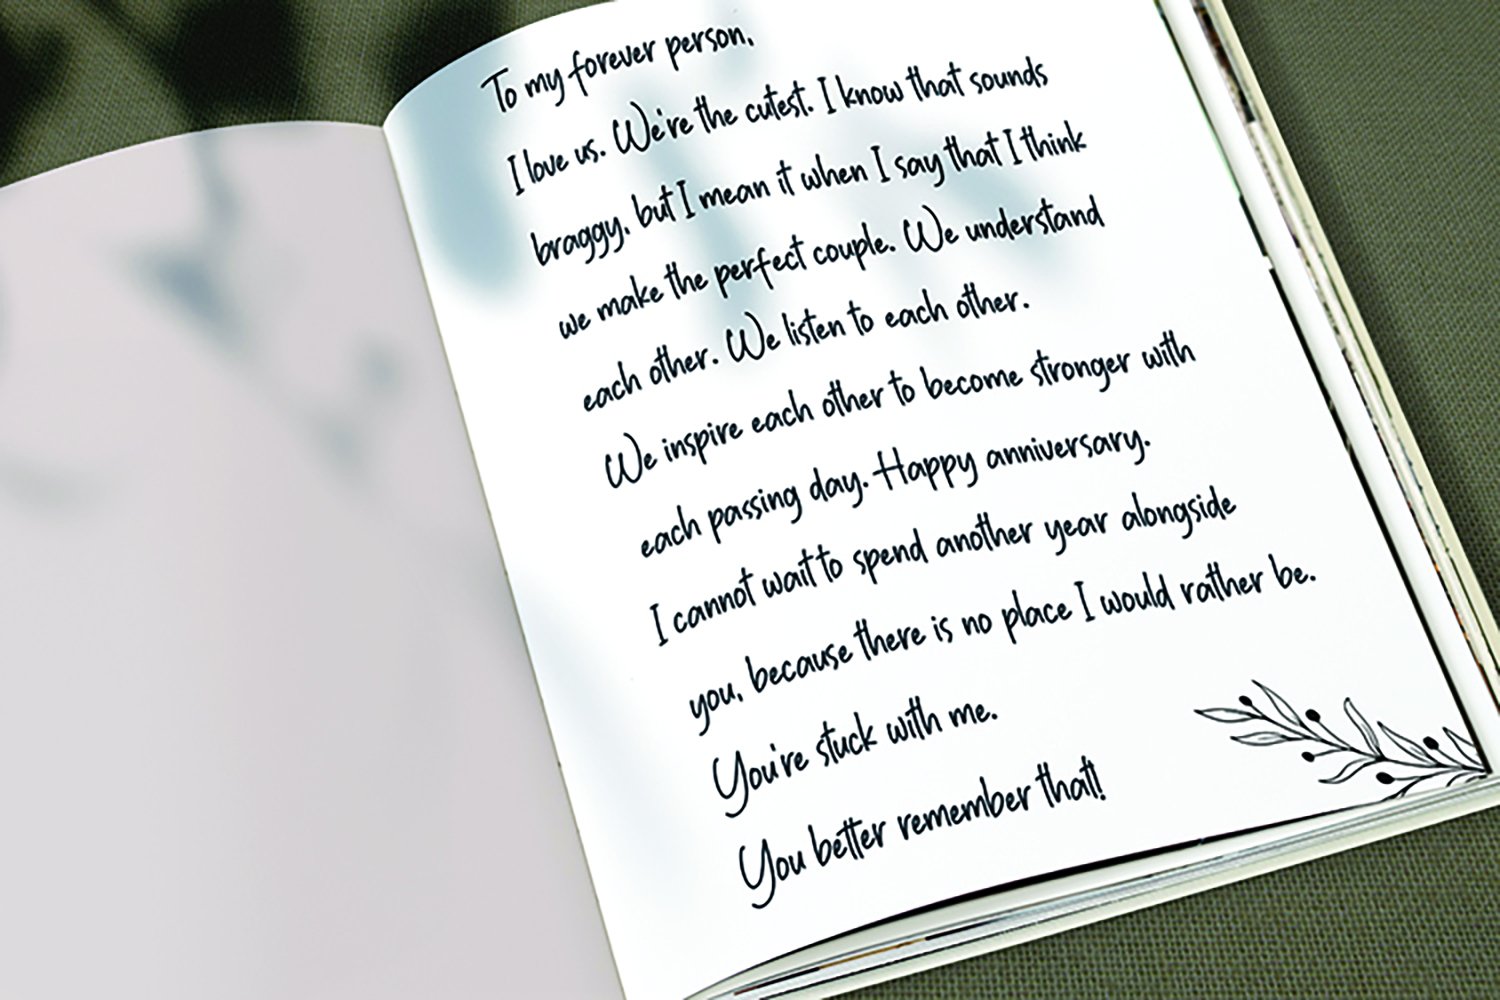 To my forever person,
I love us. We're the cutest. I know that sounds
braggy, but I mean it when I say that I think
we make the perfect couple. We understand
each other. We listen to each other.
We inspire each other to become stronger with
each passing day. Happy anniversary.
I cannot wait to spend another year alongside
you, because there is no place I would rather be.
You're stuck with me.
You better remember that!